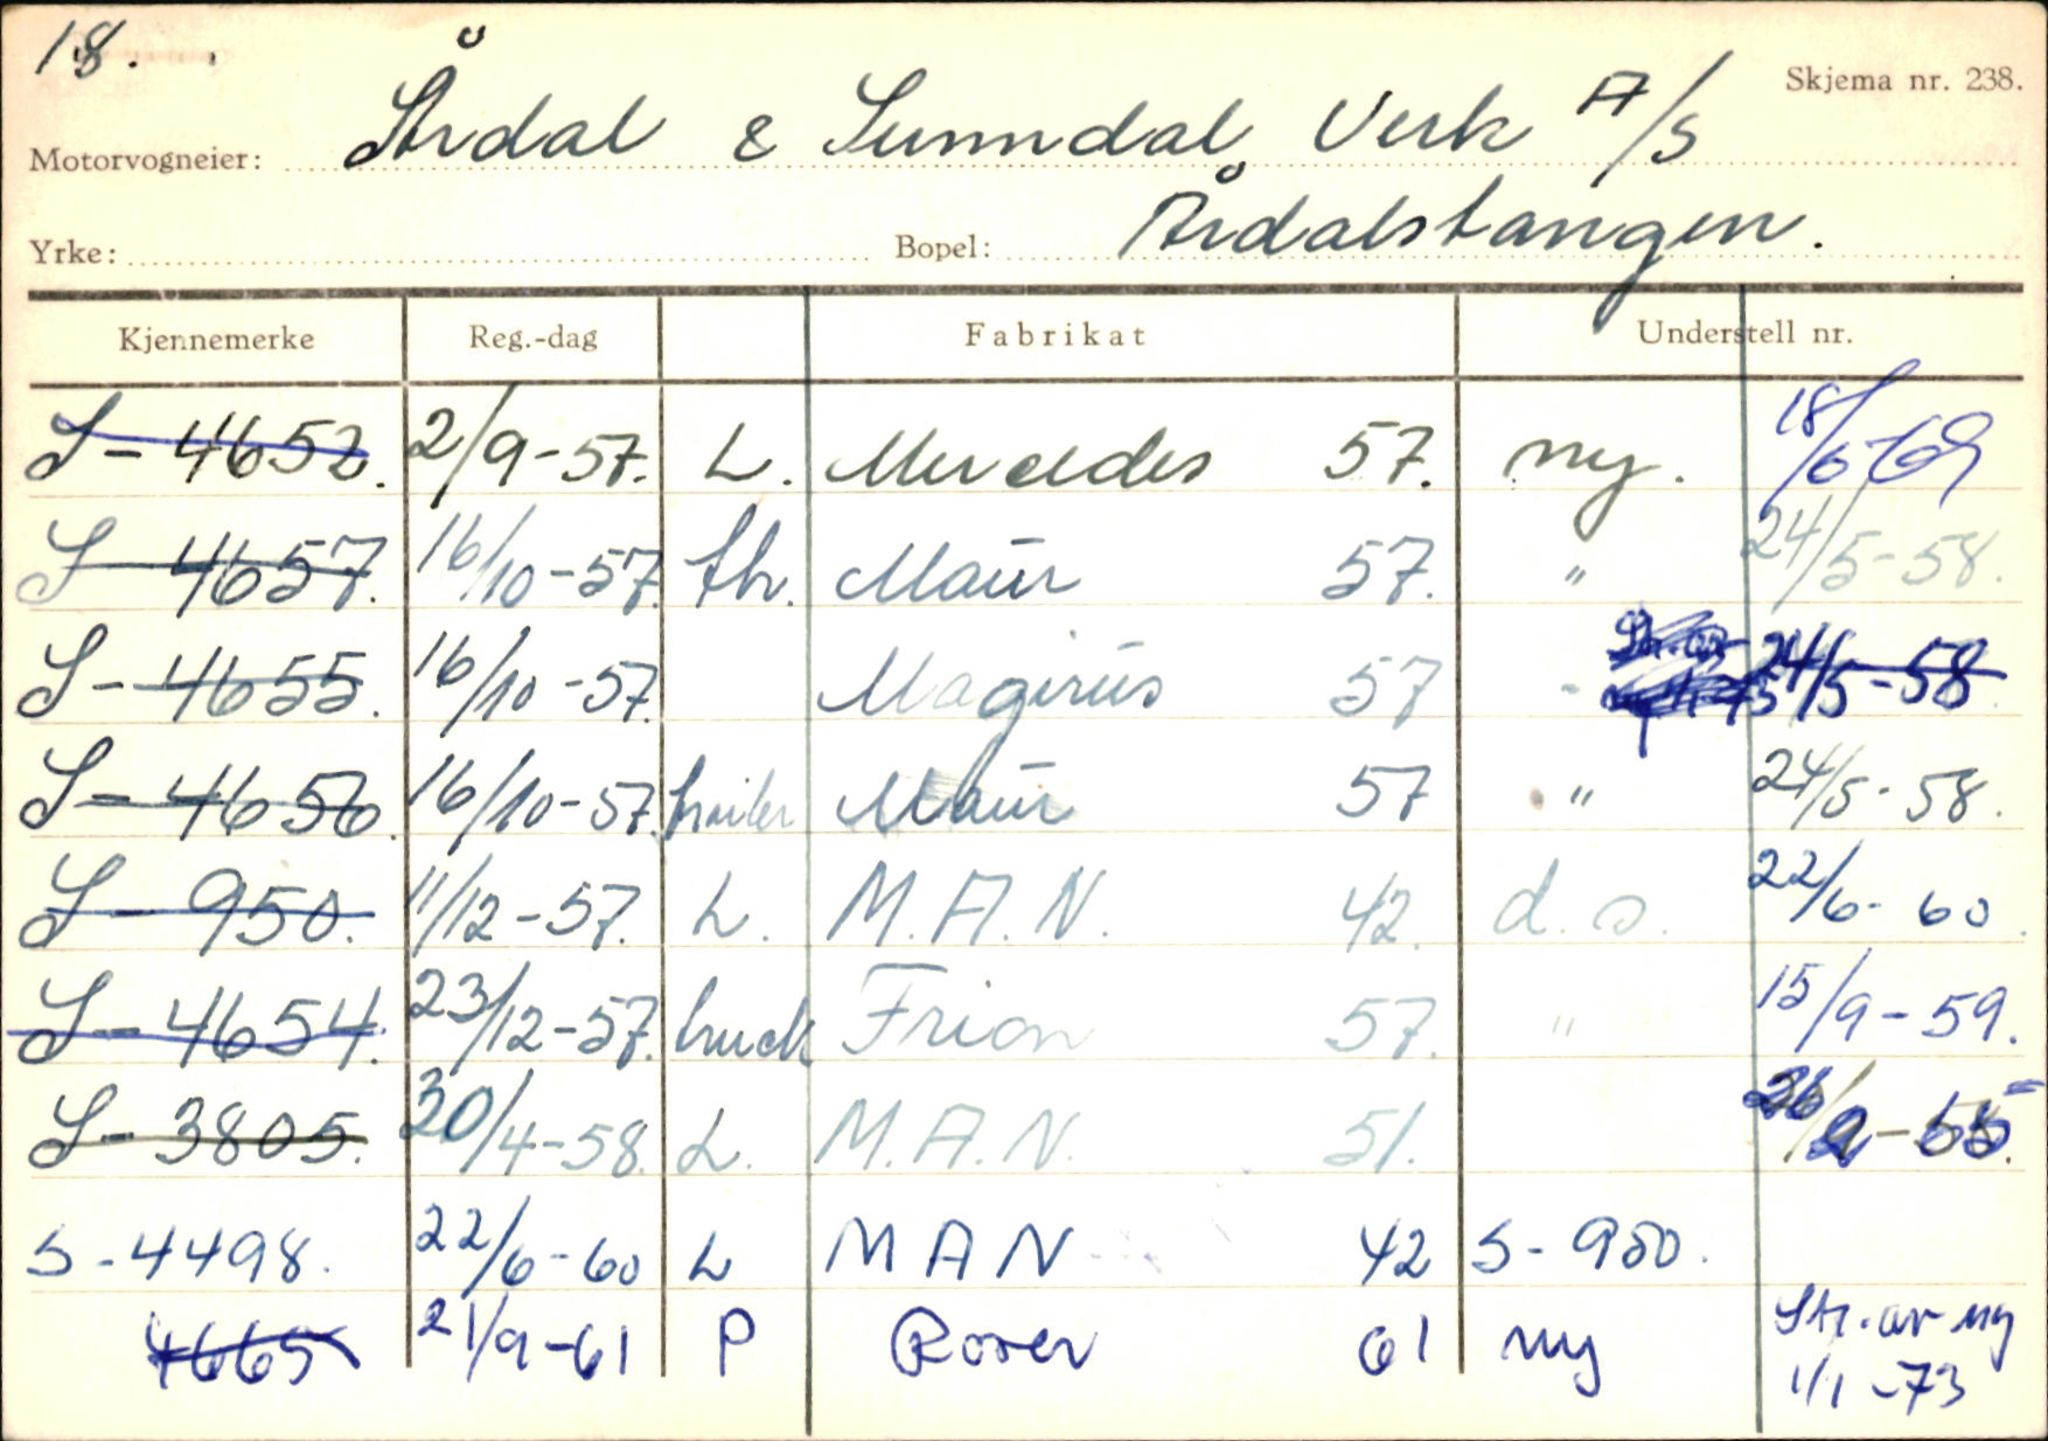 18.
Skjema nr. 238.
Motorvogneier: Årdal & Sunndal Verk A/S
Yrke: Bopel: Årdalstangen.
Kjennemerke Reg.-dag Fabrikat Understell nr.
S-4652. 2/9-57. L. Mercedes 57. ny. 18/6-69
S-4657. 16/10-57. th. Maur 57. " 24/5-58.
S-4655. 16/10-57. Magirus 57 - 24/5-58
S-4656. 16/10-57. trailer Maur 57 " 24/5-58.
S-950. 11/12-57. L. M.A.N. 42. d.o. 22/6-60.
S-4654. 23/12-57. truck Frion 57. " 15/9-59.
S-3805. 30/4-58. L. M.A.N. 51. 26/2-65.
S-4498. 22/6-60 L MAN 42 S-950.
4665 21/9-61 P Rover 61 ny Str. av ny
1/1-73